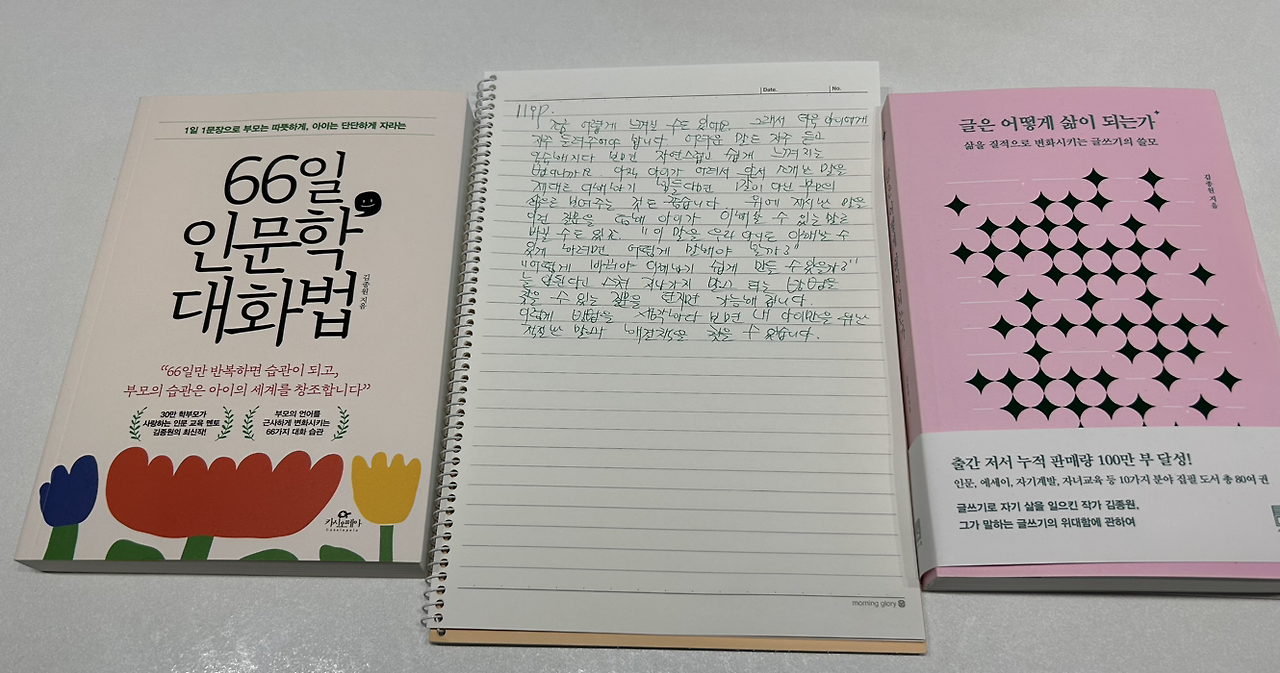 1일 1문장으로 부모는 따뜻하게, 아이는 단단하게 자라는
66일
인문학
대화법
김종원 지음
“66일만 반복하면 습관이 되고,
부모의 습관은 아이의 세계를 창조합니다”
30만 학부모가
사랑하는 인문 교육 멘토
김종원의 최신작!
부모의 언어를
근사하게 변화시키는
66가지 대화 습관
카시오페아
Cassiopeia
Date.
No.
119p.
조금 어렵게 느껴질 수도 있어요. 그래서 더욱 아이에게
자주 들려주어야 합니다. 어려운 말도 자주 듣고
익숙해지다 보면 자연스럽고 쉽게 느껴지는
법이니까요. 아직 아이가 어려서 앞서 소개한 말을
제대로 이해하기 힘들다면
보여주는 것도 좋습니다. 위에 제시한 말을
이런 질문을 통해 아이가 이해할 수 있는 말로
바꿀 수도 있죠. "이 말을 우리 아이도 이해할 수
있게 하려면 어떻게 말해야 할까?"
"어떻게 바꿔야 이해하기 쉽게 만들 수 있을까?"
늘 힘들다고 스쳐 지나가지 말고 되는 방법을
찾을 수 있는 질문을 던지면 가능해집니다.
이렇게 방법을 생각하다 보면 내 아이만을 위한
적절한 말과 해결책을 찾을 수 있습니다.
morning glory
글은 어떻게 삶이 되는가
삶을 질적으로 변화시키는 글쓰기의 쓸모
김종원 지음
출간 저서 누적 판매량 100만 부 달성!
인문, 에세이, 자기계발, 자녀교육 등 10가지 분야 집필 도서 총 80여 권
글쓰기로 자기 삶을 일으킨 작가 김종원,
그가 말하는 글쓰기의 위대함에 관하여